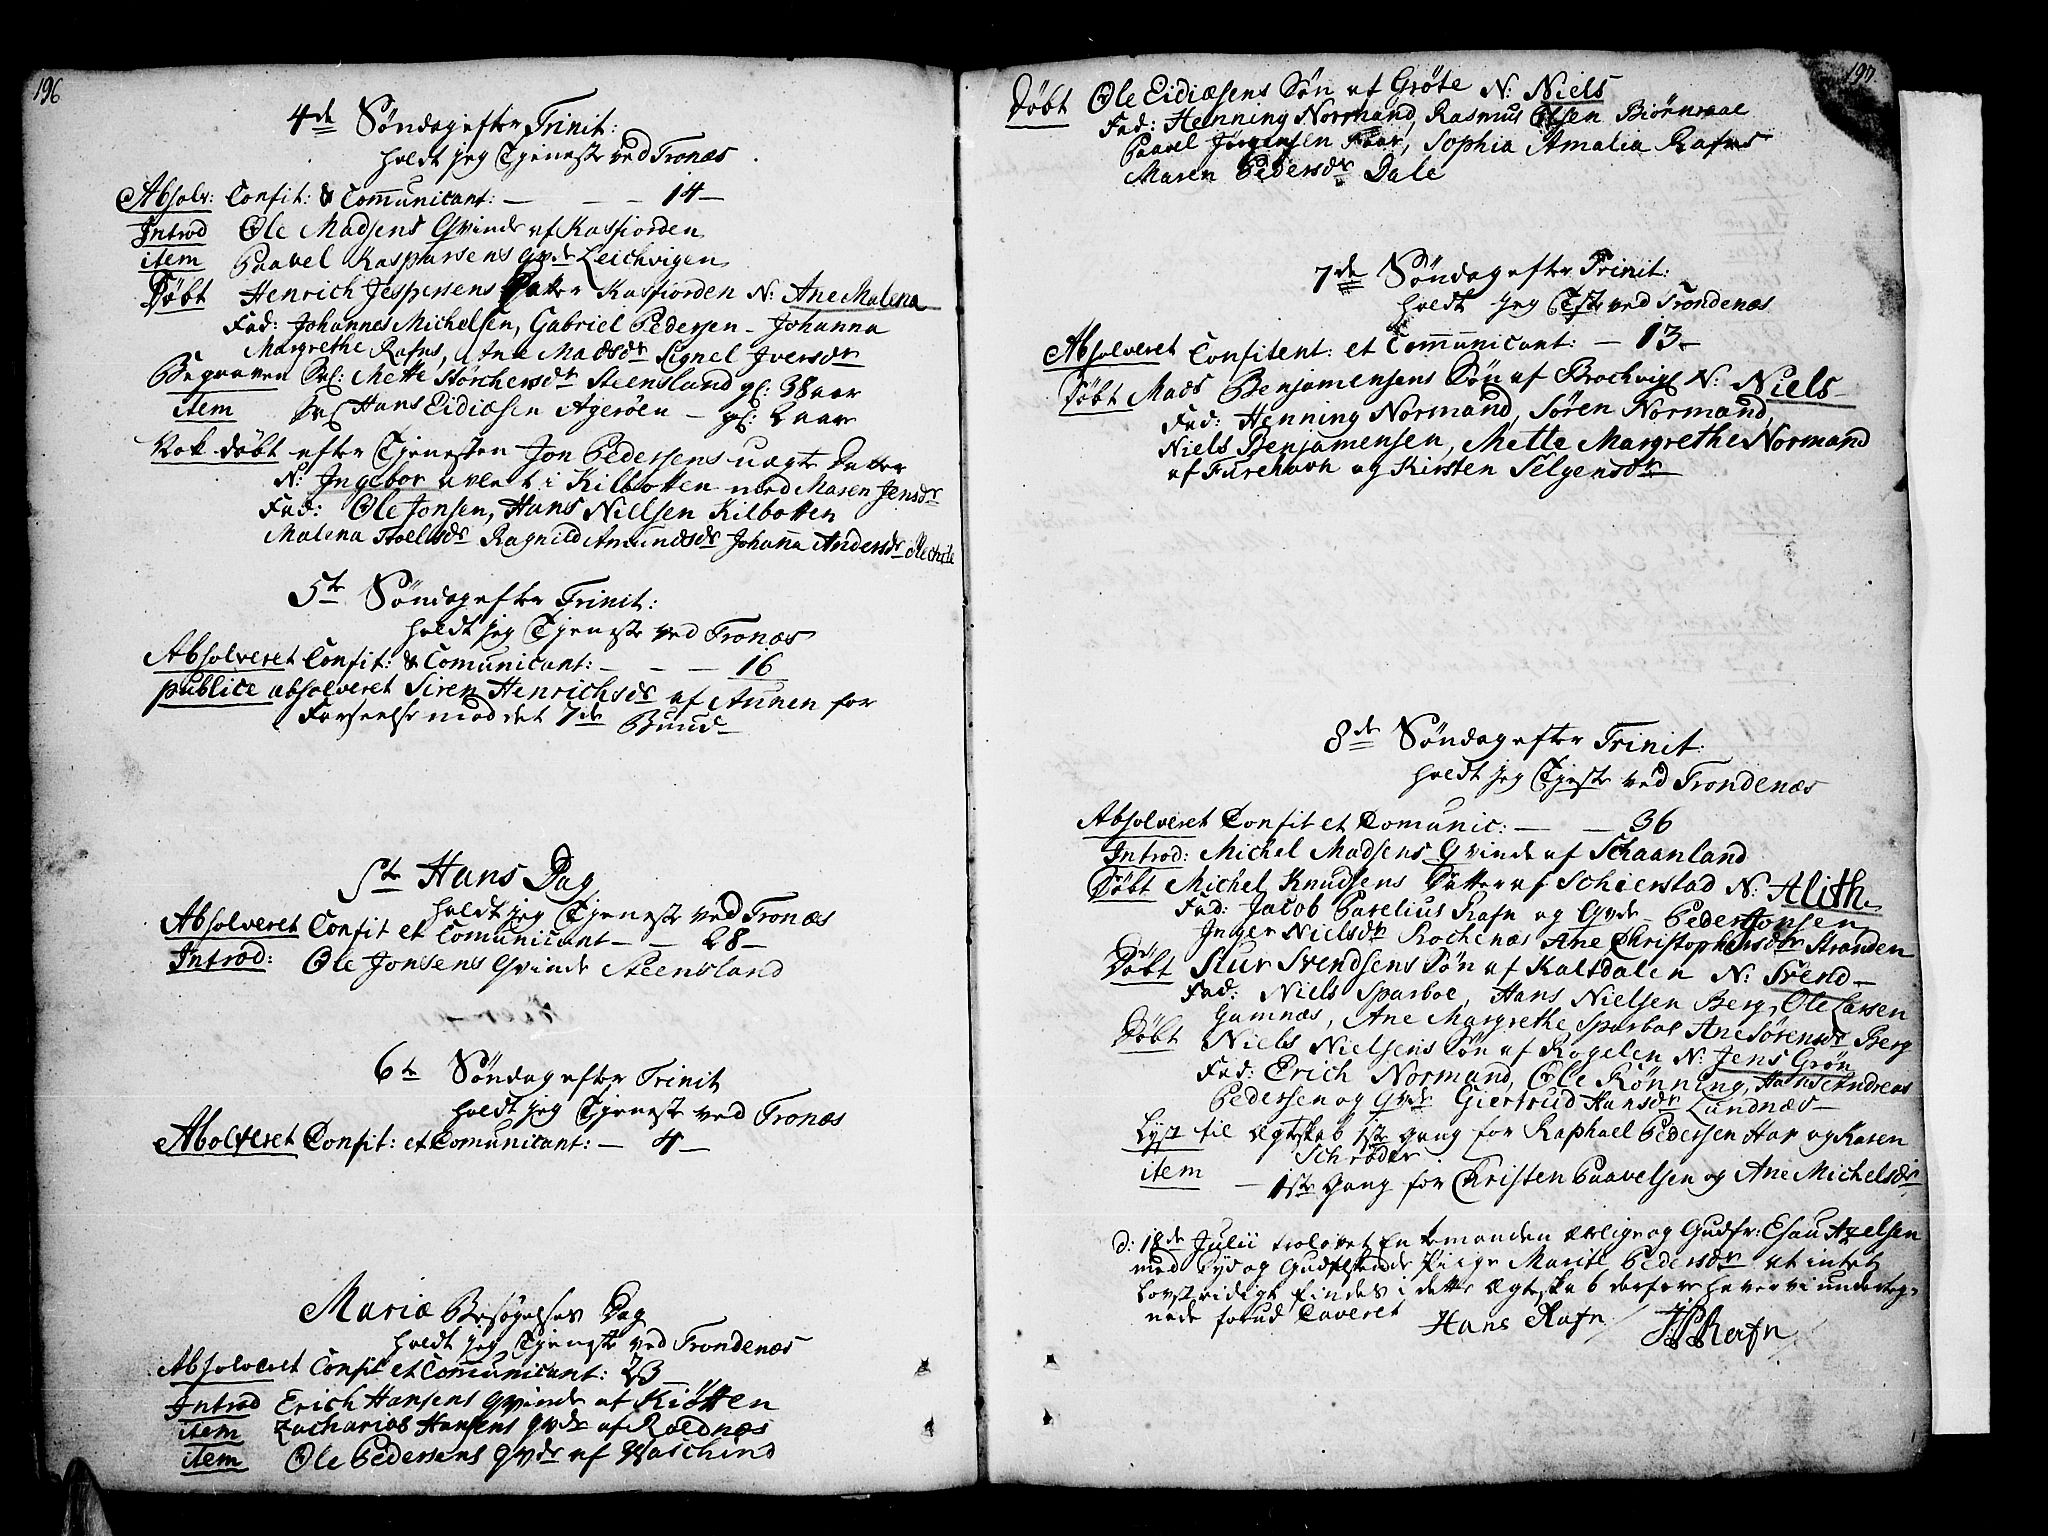 196
4de Søndag efter Trinit:
holdt jeg Tjeneste ved Tronæs
Absolv: Confit: & Communicant: — — — 14 —
Introd Ole Madsens Qvinde af Kasfiorden
item Paavel Kaspersens Qvde Leichvigen
Døbt Henrich Jespersens Datter Kasfiorden N: Ane Malena
Fad: Johannes Michelsen, Gabriel Pedersen — Johanna
Margrethe Rafns, Ane Madsdr Signel Iversdr
Begraven Sal: Mette Størchersdr Steensland gl: 38 aar
item Sal Hans Eidiæsen Agerøen — gl: 2 aar
Nok døbt efter Tjenesten Jon Pedersens uægte Datter
N: Ingebor avlet i Kilbotten med Maren Jensdr
Fad: Ole Jonsen, Hans Nielsen Kilbotten
Malena Roelsdr Ragnild Amundsdr Johanna Andersdr
5te Søndag efter Trinit:
holdt jeg Tjeneste ved Tronæs
Absolveret Confit: & Comunicant: — — — 16
publice absolveret Siren Henrichsdr af Aunen for
Forseelse mod det 7de Buud —
St Hans Dag
holdt jeg Tjeneste ved Tronæs
Absolveret Confit et Comunicant — — 28 —
Introd: Ole Jonsens Qvinde Steensland
6te Søndag efter Trinit
holdt jeg Tjeneste ved Tronæs
Abolveret Confit: et Comunicant: — 4 —
Mariæ Besøgelses Dag
holdt jeg Tjeneste ved Trondenæs
Absolveret Confit et Communicant: 23
Introd Erich Hansens Qvinde af Kiøtten
item Zacharias Hansens Qvde af Roldnæs
item Ole Pedersens Qvde af Waschind
197
Døbt Ole Eidiæsens Søn af Grøte N: Niels
Fad: Henning Normand, Rasmus Olsen Biørnraae
Paavel Jørgensen Faar, Sophia Amalia Rafns
Maren Pedersdr Dale
7de Søndag efter Trinit:
holdt jeg Tjste ved Trondenæs
Absolveret Confitent: et Communicant: — 13 —
Døbt Mads Benjamensens Søn af Brochvig N: Niels —
Fad: Henning Normand, Søren Normand,
Niels Benjamensen, Mette Margrethe Normand
af Furehavn og Kirsten Selgensdr
8de Søndag efter Trinit:
holdt jeg Tjeste ved Trondenæs
Absolveret Confit et Comunic: — — 36
Introd: Michel Madsens Qvinde af Schaanland
Døbt Michel Knudsens Datter af Schierstad N: Alith
Fad: Jacob Parelius Rafn og Qvde — Peder Jonsen
Inger Nielsdr Rochenæs Ane Christophersdr Stranden
Døbt Siur Svendsens Søn af Kalsdalen N: Svend —
Fad: Niels Sparboe, Hans Nielsen Berg, Ole Larsen
Gamnæs, Ane Margrethe Sparboe Ane Sørensdr Berg
Døbt Niels Nielsens Søn af Rogelen N: Jens Grøn
Fad: Erich Normand, Ole Rønning, Hans Andreas
Pedersen og Qvde Giertrud Hansdr Lundnæs —
Lyst til Ægteskab 1ste Gang for Raphael Pedersen Har og Karen
Schrøder
item — 1ste Gang for Christen Paavelsen og Ane Michelsdr
d: 18de Julii trolovet Enkemanden Ærlige og Gudfr: Esau Axelsen
med Dyd og Gudelskende Piige Marite Pedersdr at intet
Lovstridigt findes i dette Ægteskab derfore haver vi underteg-
nede forud Caveret Hans Rafn / JPRafn /